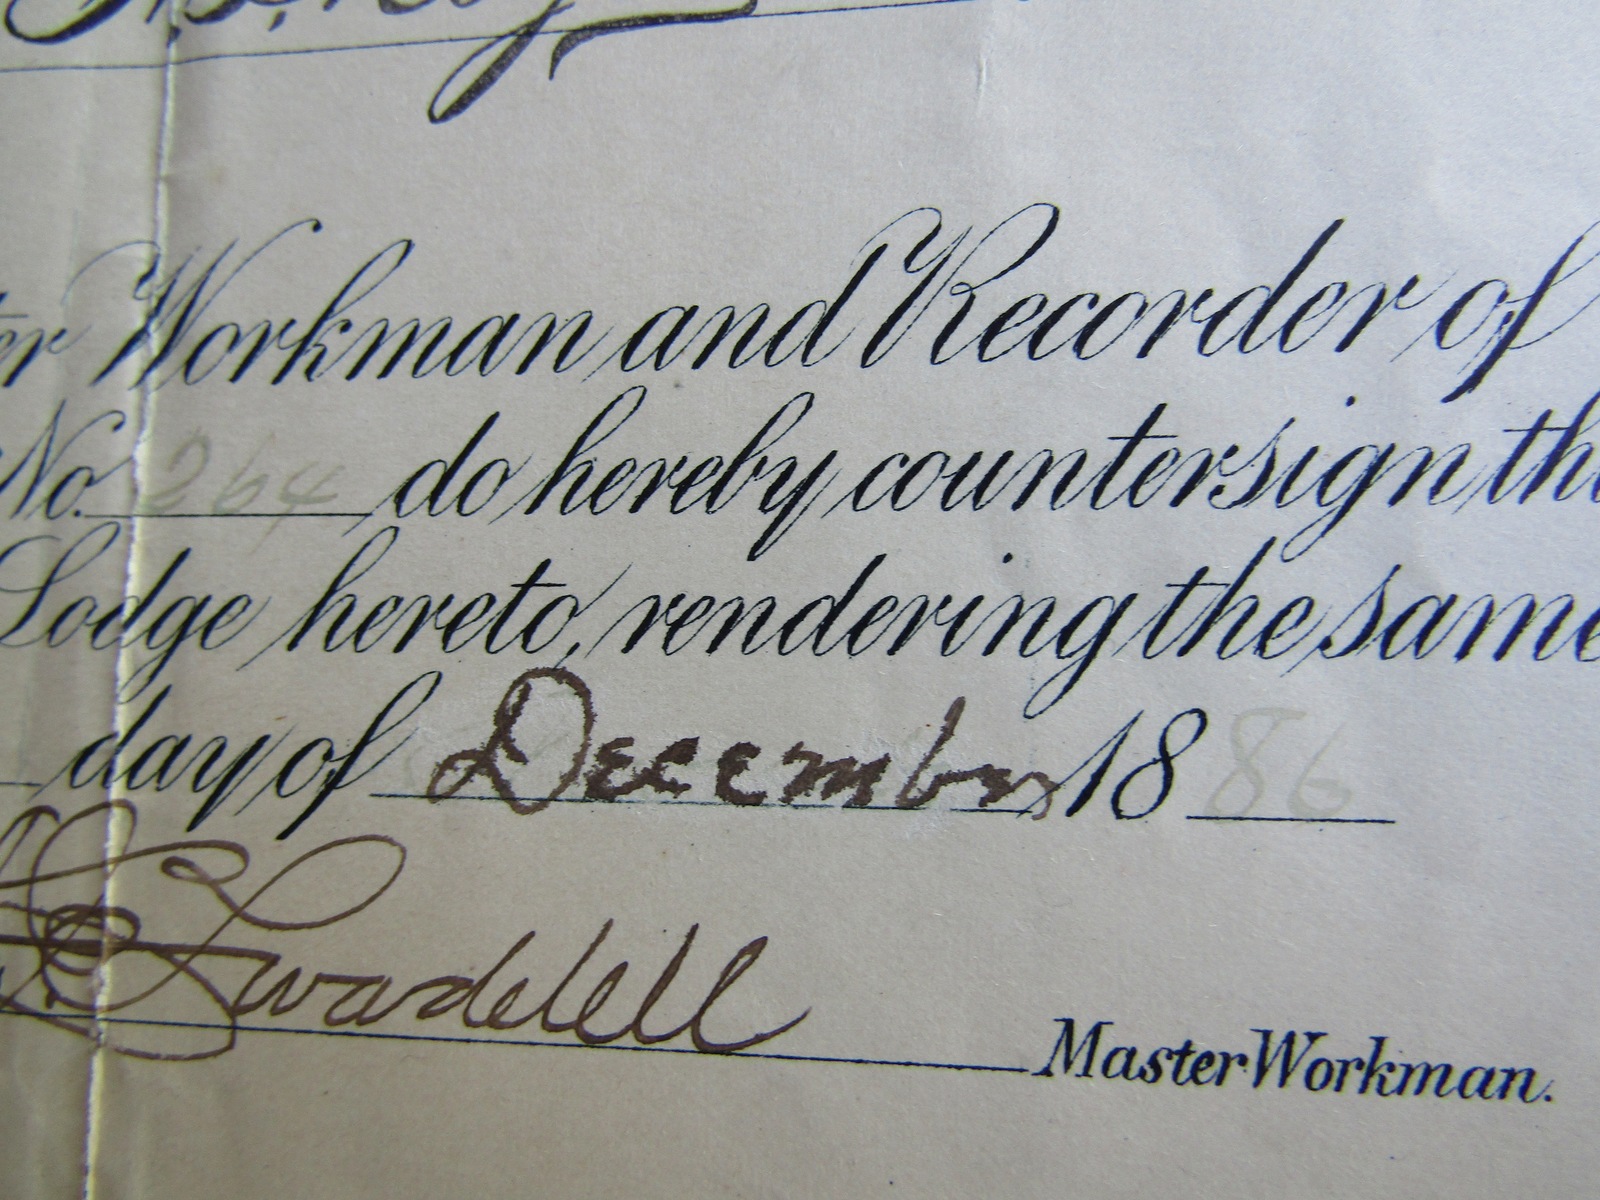 Workman and Recorder of
No. 264 do hereby countersign
Lodge hereto, rendering the same
day of December 1886
Swardlell
Master Workman.